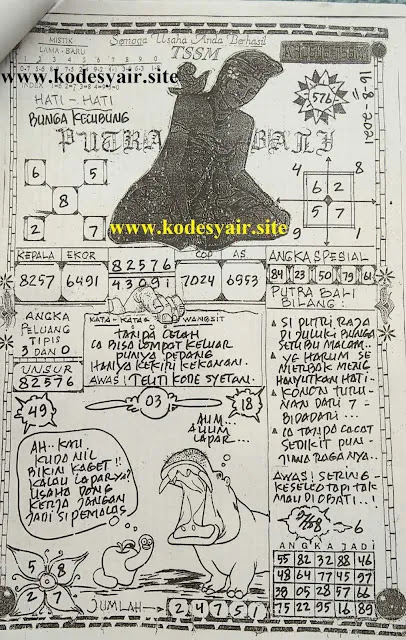 MISTIK
LAMA - BARU
Semoga Usaha Anda Berhasil
TSSM
www.kodesyair.site
576
16-8-2021
HATI - HATI
BUNGA KECUBUNG
PUTRA BALI
6 5
8
2 7
4 8
6 2
5 7
9 1
www.kodesyair.site
KEPALA EKOR
8257 6491
82576
43091
COP AS
7024 6953
ANGKA SPESIAL
84 23 50 79 61
ANGKA
PELUANG
TIPIS
3 DAN 0
UNSUR
82576
KATA - KATA WANGSIT
TANPA CELAH
IA BISA LOMPAT KELUAR
PUNYA PEDANG
HANYA KEKIRI KEKANAN.
AWAS! TELITI KODE SYETAN.
PUTRA BALI
BILANG:
SI PUTRI RAJA
DI JULUKI BUNGA
SERIBU MALAM.
YG HARUM SE
MERBAK MENG
HANYUTKAN HATI -
KONON TURU-
NAN DARI 7 =
BIDADARI...
IA TANPA CACAT
SEDIKIT PUN -
JIWA RAGANYA.
AWAS! SERING -
KESELEO TAPI TAK
MAU DI OBATI..!
49
03
18
AUM...
AUUM
LAPAR...
AH.. KAU
KUDA NIL
BIKIN KAGET!!
KALAU LAPAR YA?
USAHA DONG
KERJA JANGAN
JADI SI PEMALAS
6
5 8
2 7
JUMLAH
24751
ANGKA JADI
55 82 32 88 46
48 64 77 45 97
38 05 28 57 66
75 22 95 16 89